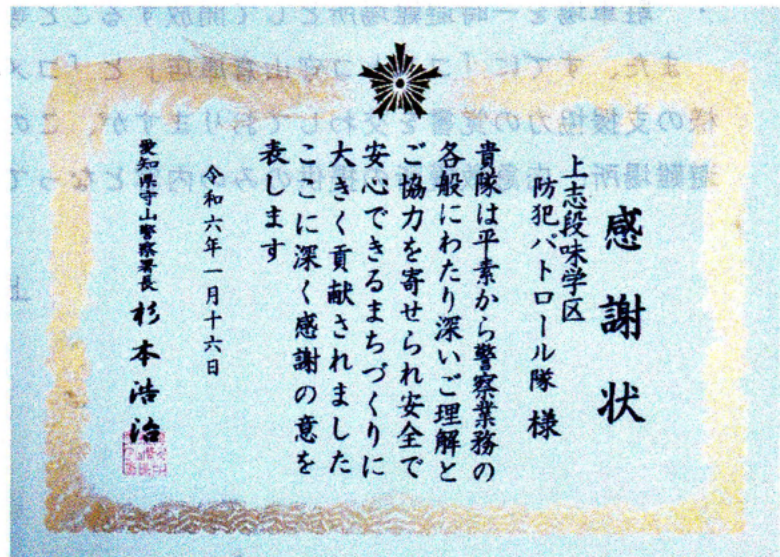 感謝状
上志段味学区
防犯パトロール隊 様
貴隊は平素から警察業務の
各般にわたり深いご理解と
ご協力を寄せられ安全で
安心できるまちづくりに
大きく貢献されました
ここに深く感謝の意を
表します
令和六年一月十六日
愛知県守山警察署長 杉本浩治